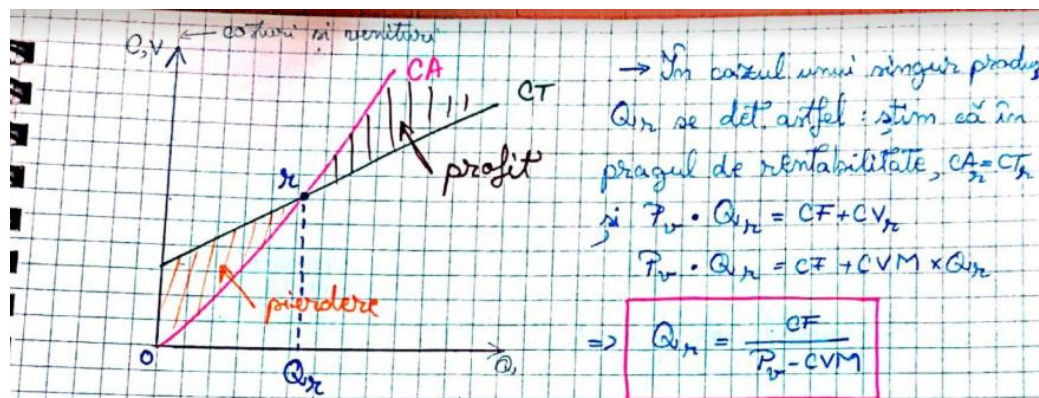 C,V ← costuri și venituri
CA
CT
profit
r
pierdere
O
Qr
Q,
→ În cazul unui singur produs
Qr se det. astfel: știm că în
pragul de rentabilitate, CAr = CTr
și Pv · Qr = CF + CVr
Pv · Qr = CF + CVM × Qr
=> Qr = CF / Pv - CVM